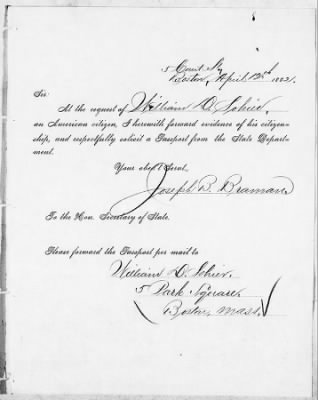 5 Court St.
Boston, April 12th 1882.
Sir:
At the request of William D. Sohier,
an American citizen, I herewith forward evidence of his citizen-
ship, and respectfully solicit a Passport from the State Depart-
ment.
Your obed't Servt.
Joseph B. Braman
To the Hon. Secretary of State.
Please forward the Passport per mail to
William D. Sohier.
5 Park Square
Boston, Mass.